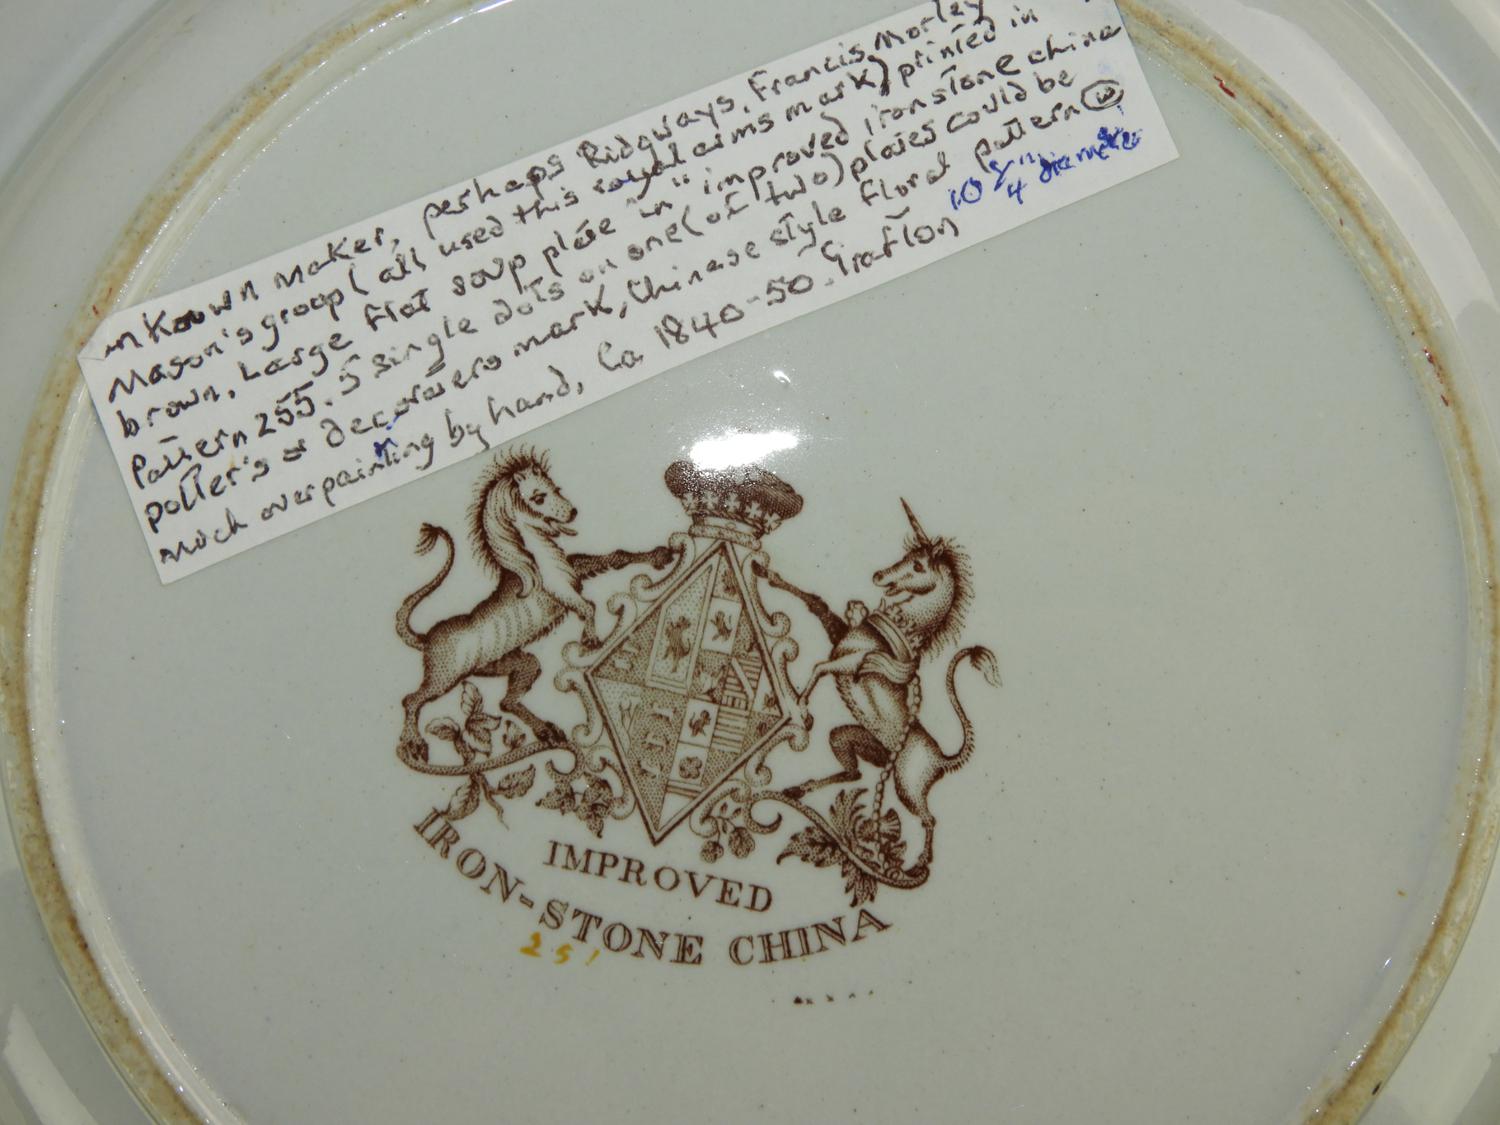 unKnown maker, perhaps Ridgways, Francis Morley
Mason's group (all used this royal arms mark) printed in
brown. Large flat soup plate in "improved ironstone china
Pattern 255. 5 single dots on one (of two) plates could be
potter's or decorators mark, Chinese style floral pattern W
much overpainting by hand, Ca 1840-50. Grafton
10 3/4" diameter
IMPROVED
IRON-STONE CHINA
251